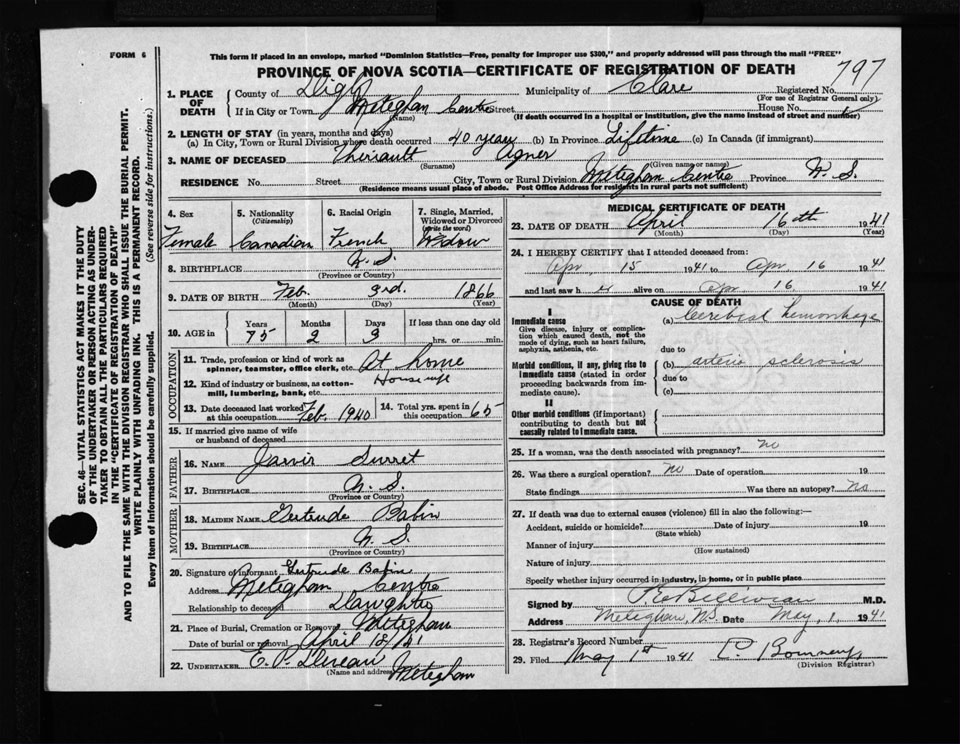 FORM 6
This form if placed in an envelope, marked "Dominion Statistics—Free, penalty for improper use $300," and properly addressed will pass through the mail "FREE"
PROVINCE OF NOVA SCOTIA—CERTIFICATE OF REGISTRATION OF DEATH
797
1. PLACE OF DEATH County of Digby Municipality of Clare Registered No.
(For use of Registrar General only)
If in City or Town Meteghan Centre Street House No.
(Name) (If death occurred in a hospital or institution, give the name instead of street and number)
2. LENGTH OF STAY (in years, months and days)
(a) In City, Town or Rural Division where death occurred 40 years (b) In Province Lifetime (c) In Canada (if immigrant)
3. NAME OF DECEASED Theriault Agnes
(Surname) (Given name or names)
RESIDENCE No. Street City, Town or Rural Division Meteghan Centre Province N. S.
(Residence means usual place of abode. Post Office Address for residents in rural parts not sufficient)
4. Sex 5. Nationality (Citizenship) 6. Racial Origin 7. Single, Married, Widowed or Divorced (write the word)
Female Canadian French Widow
8. BIRTHPLACE N. S.
(Province or Country)
9. DATE OF BIRTH Feb. 3rd. 1866
(Month) (Day) (Year)
10. AGE in Years Months Days If less than one day old
75 2 3 hrs. or min.
OCCUPATION
11. Trade, profession or kind of work as spinner, teamster, office clerk, etc. At home
12. Kind of industry or business, as cotton-mill, lumbering, bank, etc. Housewife
13. Date deceased last worked at this occupation Feb. 1940 14. Total yrs. spent in this occupation 65
15. If married give name of wife or husband of deceased
FATHER
16. NAME Jarvis Surret
17. BIRTHPLACE N. S.
(Province or Country)
MOTHER
18. MAIDEN NAME Gertrude Babin
19. BIRTHPLACE N. S.
(Province or Country)
20. Signature of informant Gertrude Babin
Address Meteghan Centre
Relationship to deceased Daughter
21. Place of Burial, Cremation or Removal Meteghan
Date of burial or removal April 18/41
22. UNDERTAKER E. P.
(Name and address) Meteghan
MEDICAL CERTIFICATE OF DEATH
23. DATE OF DEATH April 16th 1941
(Month) (Day) (Year)
24. I HEREBY CERTIFY that I attended deceased from:
Apr 15 1941 to Apr 16 1941
and last saw h er alive on Apr 16 1941
CAUSE OF DEATH
I
Immediate cause (a) Cerebral hemorrhage
Give disease, injury or complication which caused death, not the mode of dying, such as heart failure, asphyxia, asthenia, etc.
due to
Morbid conditions, if any, giving rise to immediate cause (stated in order proceeding backwards from immediate cause) (b) arterio sclerosis
due to
(c)
II
Other morbid conditions (if important) contributing to death but not causally related to immediate cause.
25. If a woman, was the death associated with pregnancy? no
26. Was there a surgical operation? No Date of operation 19
State findings Was there an autopsy? No
27. If death was due to external causes (violence) fill in also the following:—
Accident, suicide or homicide? Date of injury 19
(State which)
Manner of injury
(How sustained)
Nature of injury
Specify whether injury occurred in industry, in home, or in public place
Signed by M.D.
Address Meteghan, N.S. Date May, 1, 1941
28. Registrar's Record Number
29. Filed May 1st 1941
(Division Registrar)
SEC. 46—VITAL STATISTICS ACT MAKES IT THE DUTY
OF THE UNDERTAKER OR PERSON ACTING AS UNDER-
TAKER TO OBTAIN ALL THE PARTICULARS REQUIRED
IN THE "CERTIFICATE OF REGISTRATION OF DEATH"
AND TO FILE THE SAME WITH THE DIVISION REGISTRAR WHO SHALL ISSUE THE BURIAL PERMIT.
WRITE PLAINLY WITH UNFADING INK. THIS IS A PERMANENT RECORD.
Every item of information should be carefully supplied. (See reverse side for instructions.)